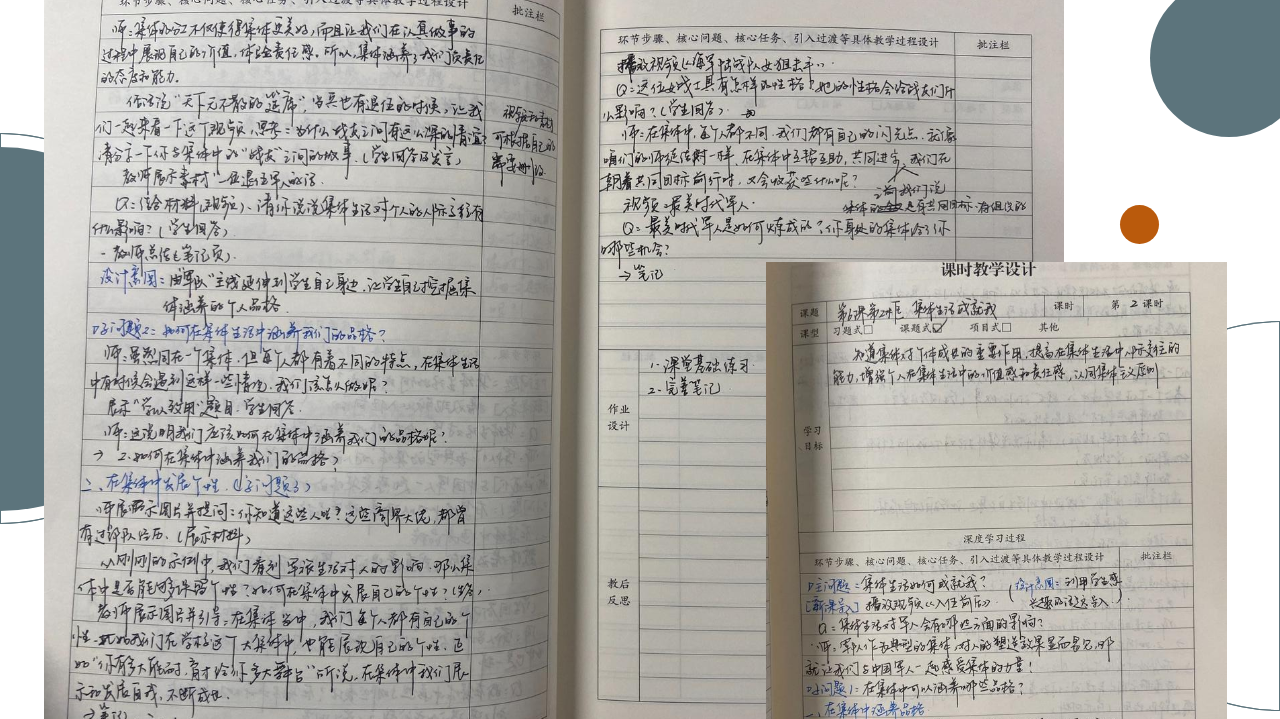 环节步骤、核心问题、核心任务、引入过渡等具体教学过程设计
批注栏
师:集体分工不仅使得集体更美好,而且让我们在认真做事的
过程中展现自己的价值,体验责任感。所以,集体涵养了我们负责任
的态度和能力。
俗话说"天下无不散的筵席",当兵也有退伍的时候,让我
们一起来看一下这个视频,思考:为什么战友之间有这么深的情谊?
请分享一下你与集体中的"战友"之间的故事。(学生回答及发言)
教师展示素材"一位退伍军人的话"
视频和素材
可根据自己的
需要删改
Q:结合材料(视频),请你说说集体生活对个人的人际交往有
什么影响?(学生回答)
-教师总结(笔记页)
设计意图:由"军队"主线延伸到学生自己身边,让学生自己挖掘集
体涵养的个人品格
子问题2:如何在集体生活中涵养我们的品格?
师:虽然同在一个集体,但每人都有着不同的特点,在集体生活
中有时候会遇到这样一些情况,我们该怎么做呢?
展示"学以致用"题目,学生回答
师:这说明我们应该如何在集体中涵养我们的品格呢?
→ 2.如何在集体中涵养我们的品格)
二、在集体中发展个性.(子问题3)
师展示图片并提问:你知道这些人吗?这些商界大佬,都曾
有过部队经历。(展示材料)
从刚刚的示例中,我们看到军旅生活对人的影响,那么集
体中是否能
如何在集体中发展自己的个性?
教师展示图片并引导:在集体当中,我们每个人都有自己的个
性,比如我们在学校这个大集体中,也能展现自己的个性。正
如"你有多大能耐,育才给你多大舞台"所说,在集体中我们展
示和发展自我,不断成长.
→笔记
环节步骤、核心问题、核心任务、引入过渡等具体教学过程设计
批注栏
播放视频《海军陆战队女狙击手》
Q:这位女战士具有怎样的性格?她的性格会给战友们什
么影响?(学生回答)
师:在集体中,每个人都不同,我们都有自己的闪光点,就像
咱们的师徒结对一样,在集体中互帮互助,共同进步,我们在
朝着共同目标前行时,又会收获些什么呢?
视频:最美时代军人.
前我们说
集体的 是有共同目标、有组织的
Q:最美时代军人是如何炼成的?你身处的集体给了你
哪些机会?
→笔记
作业
设计
1.课堂基础练习.
2.完善笔记
教后
反思
课时教学设计
课题
第6课第2框 集体生活成就我
课时
第 2 课时
课型
习题式□ 课题式☑ 项目式□ 其他
学习
目标
知道集体对个体成长的重要作用,提高在集体生活中人际交往的
能力,增强个人在集体生活中的价值感和责任感,认同集体主义原则
深度学习过程
环节步骤、核心问题、核心任务、引入过渡等具体教学过程设计
批注栏
主问题:集体生活如何成就我?
(设计意图:利用学生感
兴趣的话题导入)
[新课导入] 播放视频《入伍前后》
Q:集体生活对军人会有哪些方面的影响?
师:军队作为典型的集体,对人的塑造效果显而易见,那
就让我们与中国军人一起感受集体的力量!
子问题1:在集体中可以涵养哪些品格?
一、在集体中涵养品格